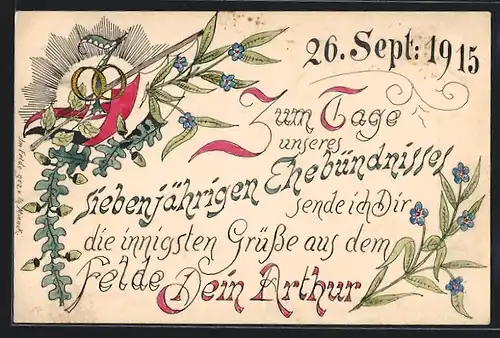 26. Sept: 1915
Zum Tage
unseres
siebenjährigen Ehebündnisses
sende ich Dir
die innigsten Grüße aus dem
Felde Dein Arthur
Im Felde gez. v.